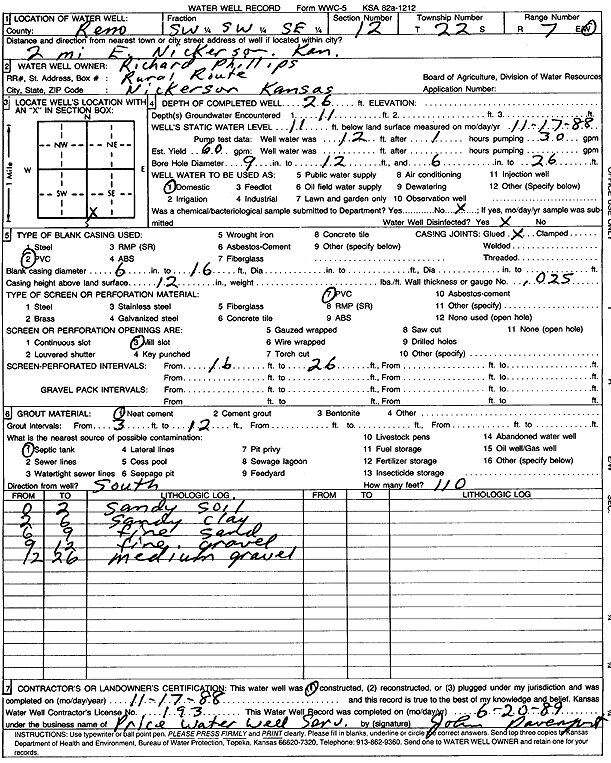 WATER WELL RECORD Form WWC-5 KSA 82a-1212
1 LOCATION OF WATER WELL: Fraction Section Number Township Number Range Number
County: Reno SW ¼ SW ¼ SE ¼ 12 T 22 S R 7 E/W
Distance and direction from nearest town or city street address of well if located within city?
2 mi E. Nickerson. Kan.
2 WATER WELL OWNER: Richard Phillips
RR#, St. Address, Box # : Rural Route Board of Agriculture, Division of Water Resources
City, State, ZIP Code : Nickerson Kansas Application Number:
3 LOCATE WELL'S LOCATION WITH AN "X" IN SECTION BOX:
N
NW NE
W E
SW SE
X
1 Mile
4 DEPTH OF COMPLETED WELL 26 ft. ELEVATION:
Depth(s) Groundwater Encountered 1 11 ft. 2. ft. 3. ft.
WELL'S STATIC WATER LEVEL 11 ft. below land surface measured on mo/day/yr 11-17-88
Pump test data: Well water was 12 ft. after 1 hours pumping 30 gpm
Est. Yield 60 gpm: Well water was ft. after hours pumping gpm
Bore Hole Diameter 9 in. to 12 ft., and 6 in. to 26 ft.
WELL WATER TO BE USED AS: 5 Public water supply 8 Air conditioning 11 Injection well
1 Domestic 3 Feedlot 6 Oil field water supply 9 Dewatering 12 Other (Specify below)
2 Irrigation 4 Industrial 7 Lawn and garden only 10 Observation well
Was a chemical/bacteriological sample submitted to Department? Yes No X ; If yes, mo/day/yr sample was submitted
Water Well Disinfected? Yes X No
5 TYPE OF BLANK CASING USED: 5 Wrought iron 8 Concrete tile CASING JOINTS: Glued X Clamped
1 Steel 3 RMP (SR) 6 Asbestos-Cement 9 Other (specify below) Welded
2 PVC 4 ABS 7 Fiberglass Threaded
Blank casing diameter 6 in. to 16 ft., Dia in. to ft., Dia in. to ft.
Casing height above land surface 12 in., weight lbs./ft. Wall thickness or gauge No. .025
TYPE OF SCREEN OR PERFORATION MATERIAL: 7 PVC 10 Asbestos-cement
1 Steel 3 Stainless steel 5 Fiberglass 8 RMP (SR) 11 Other (specify)
2 Brass 4 Galvanized steel 6 Concrete tile 9 ABS 12 None used (open hole)
SCREEN OR PERFORATION OPENINGS ARE: 5 Gauzed wrapped 8 Saw cut 11 None (open hole)
1 Continuous slot 3 Mill slot 6 Wire wrapped 9 Drilled holes
2 Louvered shutter 4 Key punched 7 Torch cut 10 Other (specify)
SCREEN-PERFORATED INTERVALS: From 16 ft. to 26 ft., From ft. to ft.
From ft. to ft., From ft. to ft.
GRAVEL PACK INTERVALS: From ft. to ft., From ft. to ft.
From ft. to ft., From ft. to ft.
6 GROUT MATERIAL: 1 Neat cement 2 Cement grout 3 Bentonite 4 Other
Grout Intervals: From 3 ft. to 12 ft., From ft. to ft., From ft. to ft.
What is the nearest source of possible contamination: 10 Livestock pens 14 Abandoned water well
1 Septic tank 4 Lateral lines 7 Pit privy 11 Fuel storage 15 Oil well/Gas well
2 Sewer lines 5 Cess pool 8 Sewage lagoon 12 Fertilizer storage 16 Other (specify below)
3 Watertight sewer lines 6 Seepage pit 9 Feedyard 13 Insecticide storage
Direction from well? South How many feet? 110
FROM TO LITHOLOGIC LOG FROM TO LITHOLOGIC LOG
0 2 Sandy Soil
2 6 Sandy clay
6 9 fine sand
9 12 fine gravel
12 26 medium gravel
7 CONTRACTOR'S OR LANDOWNER'S CERTIFICATION: This water well was (1) constructed, (2) reconstructed, or (3) plugged under my jurisdiction and was
completed on (mo/day/year) 11-17-88 and this record is true to the best of my knowledge and belief. Kansas
Water Well Contractor's License No. 193 This Water Well Record was completed on (mo/day/yr) 6-20-89
under the business name of Price Water Well Serv. by (signature) John Davenport
INSTRUCTIONS: Use typewriter or ball point pen. PLEASE PRESS FIRMLY and PRINT clearly. Please fill in blanks, underline or circle the correct answers. Send top three copies to Kansas
Department of Health and Environment, Bureau of Water Protection, Topeka, Kansas 66620-7320, Telephone: 913-862-9360. Send one to WATER WELL OWNER and retain one for your
records.